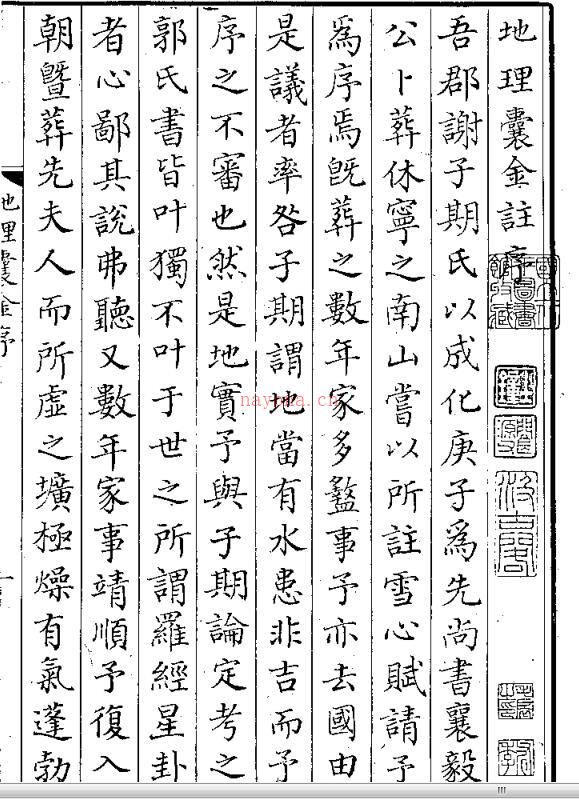 地理囊金註序
吾郡謝子期氏以成化庚子爲先尚書襄毅
公卜葬休寧之南山嘗以所註雪心賦請予
爲序焉旣葬之數年家多盭事予亦去國由
是議者率咎子期謂地當有水患非吉而予
序之不審也然是地實予與子期論定考之
郭氏書皆叶獨不叶于世之所謂羅經星卦
者心鄙其說弗聽又數年家事靖順予復入
朝曁葬先夫人而所虛之壙極燥有氣蓬勃
地理囊金序
nayona.cn